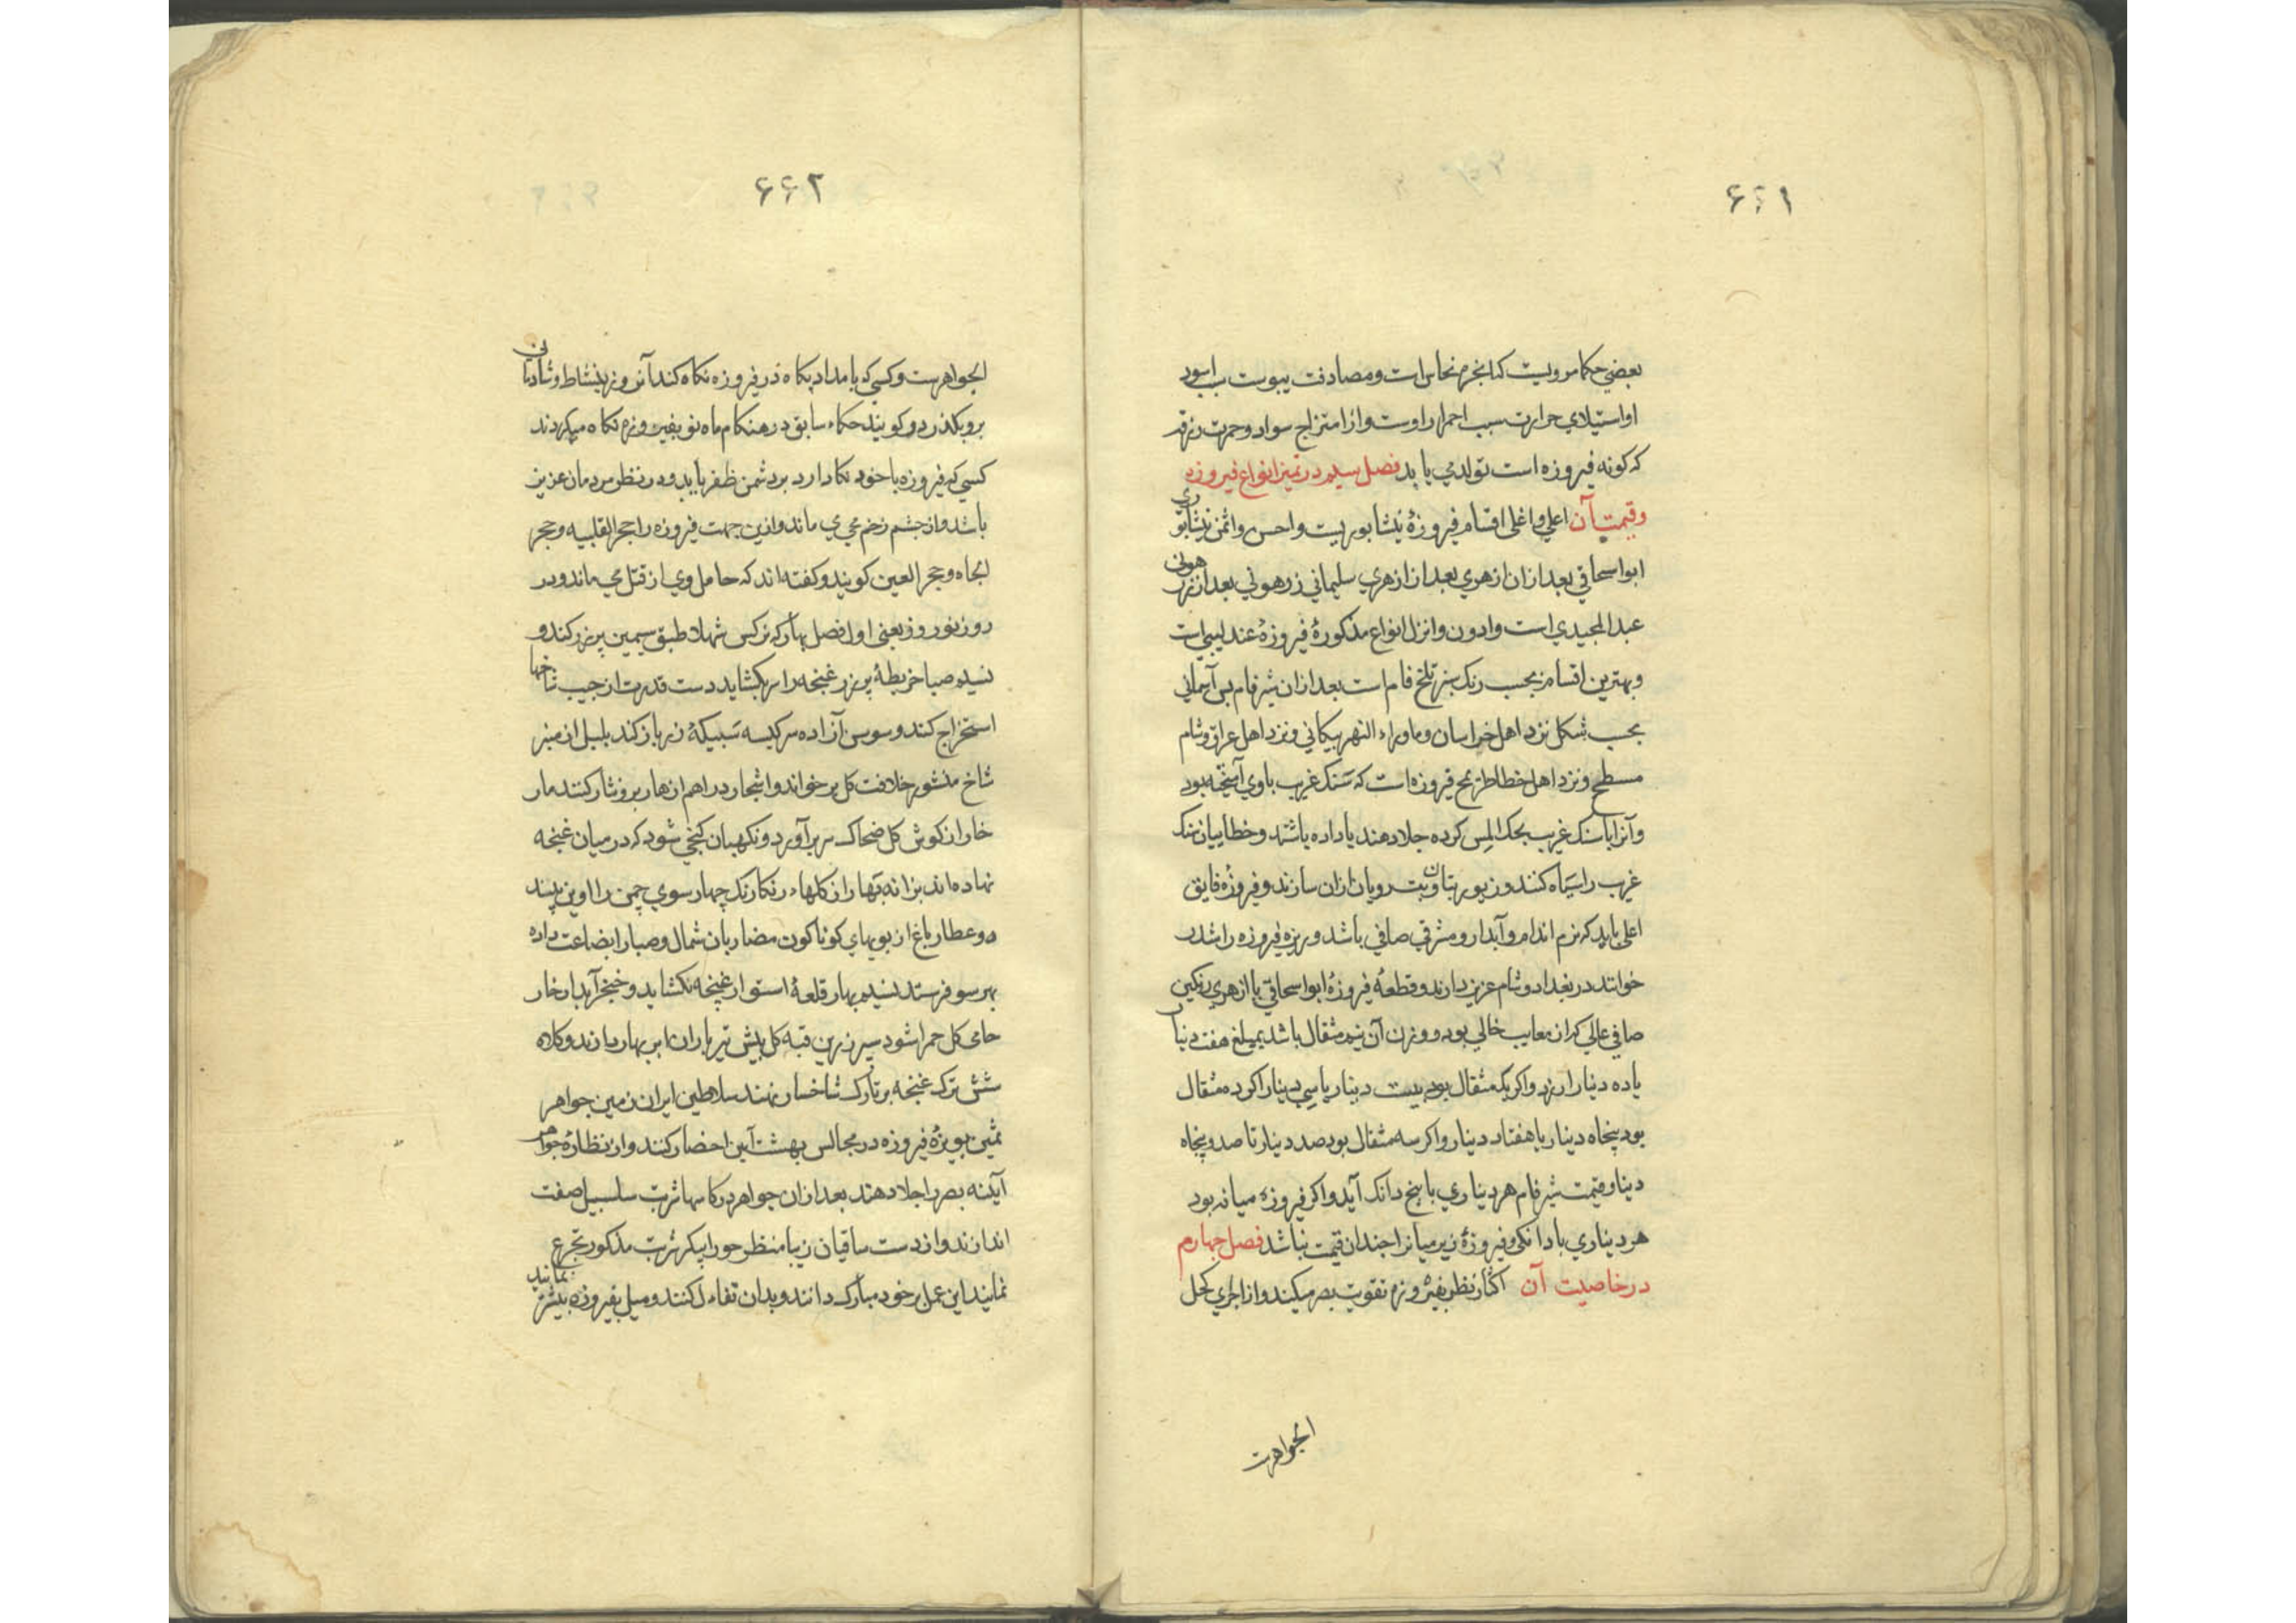 ۶۶۱
بعضی حکما مرویست که ابخرهٔ نحاس است و مصادفت یبوست سبب اسود
او استیلای حرارت سبب احمرار اوست و از امتزاج سواد و حمرت زرقه
که کونه فیروزه است تولد می یابد فصل سیم در تمیز انواع فیروزه
و قیمت آن اعلی و اغلی اقسام فیروزهٔ نیشابوریست و احسن و اثمن نیشابوری
ابواسحاقی بعد ازان ازهری بعد از ازهری سلیمانی زرهونی بعد از زرهونی
عبدالمجیدی است و ادون و انزل انواع مذکورهٔ فیروزهٔ عندلیبی است
و بهترین اقسام بحسب رنک سبز تلخ فام است بعد ازان شیرفام پس آسمانی
بحسب شکل نزد اهل خراسان و ماوراء النهر پیکانی و نزد اهل عراق و شام
مسطح و نزد اهل خطا طرمح فیروزه است که سنک غریب باوی آمیخته بود
و آنرا با سنک غریب بحک املس کرده جلا دهند یا داده باشند و خطاییان سنک
غریب را سیاه کنند و زیور بتان و بت رویان ازان سازند و فیروزه فایق
اعلی باید که نرم اندام و آبدار و مشرق صافی باشد و ریزه فیروزه را شدر
خوانند در بغداد و شام عزیز دارند و قطعهٔ فیروزهٔ ابواسحاقی یا ازهری رنکین
صافی عالی که از معایب خالی بود و وزن آن نیم مثقال باشد بمبلغ هفت دینار
یا ده دینار ارزد و اکر یک مثقال بود بیست دینار یا سی دینار اکر دو مثقال
بود پنجاه دینار یا هفتاد دینار و اکر سه مثقال بود صد دینار تا صد و پنجاه
دینار و قیمت شیرفام هر دیناری با پنج دانک آید و اکر فیروزه میانه بود
هر دیناری با دانکی و فیروزهٔ زیر میانرا چندان قیمت نباشد فصل چهارم
در خاصیت آن اکثار نظر بفیروزه تقویت بصر میکند و از اجزای کحل
الجواهرست
۶۶۲
الجواهرست و کسی که بامداد پکاه در فیروزه نکاه کند آنروز بنشاط و شادمانی
برو بکذرد و کویند حکماء سابق در هنکام ماه نو بفیروزه نکاه میکردند
کسی که فیروزه با خود نکاه دارد بر دشمن ظفر یابد و در نظر مردمان عزیز
باشد و از چشم زخم محمی ماند و ازین جهت فیروزه را حجر الغلبه و حجر
الجاه و حجر العین کویند و کفته اند که حامل وی از قتل محمی ماند و در
روز نوروز یعنی اول فصل بهار که نرکس شهلا طبق سیمین پر زر کند و
نسیم صبا خریطهٔ پر زر غنچه را سر بکشاید دست قدرت از جیب شاخها
استخراج کند و سوسن آزاده سر کیسه سبیکهٔ زر باز کند بلبل از منبر
شاخ منشور خلافت کل بر خواند و اشجار دراهم ازهار برو نثار کنند مار
خار از کوش کل ضحاک سر بر آورد و نکهبان کنجی شود که در میان غنچه
نهاده اند بزازنه بهار از کلهاء رنکارنک چهار سوی چمن را آذین بندد
و عطار باغ از بویهای کوناکون مضاربان شمال و صبا را بضاعت داده
بهر سو فرستد نسیم بهار قلعهٔ استوار غنچه نکشاید و خنجر آبدار خار
حامی کل حمرا شود سپر زرین قبه کل پیش تیر باران ابر بهار دارند و کلاه
شش ترک غنچه بر تارک شاخسار نهند سلاطین ایران زمین جواهر
ثمین بویژهٔ فیروزه در مجالس بهشت آیین احضار کنند و از نظارهٔ جواهر
آینه بصر را جلا دهند بعد ازان جواهر در کاسهاء شربت سلسبیل صفت
اندازند و از دست ساقیان زیبا منظر حورا پیکر شربت مذکور تجرع
نمایند این عمل بر خود مبارک دانند و بدان تفاءل کنند و میل بفیروزه بیشتر نمایند